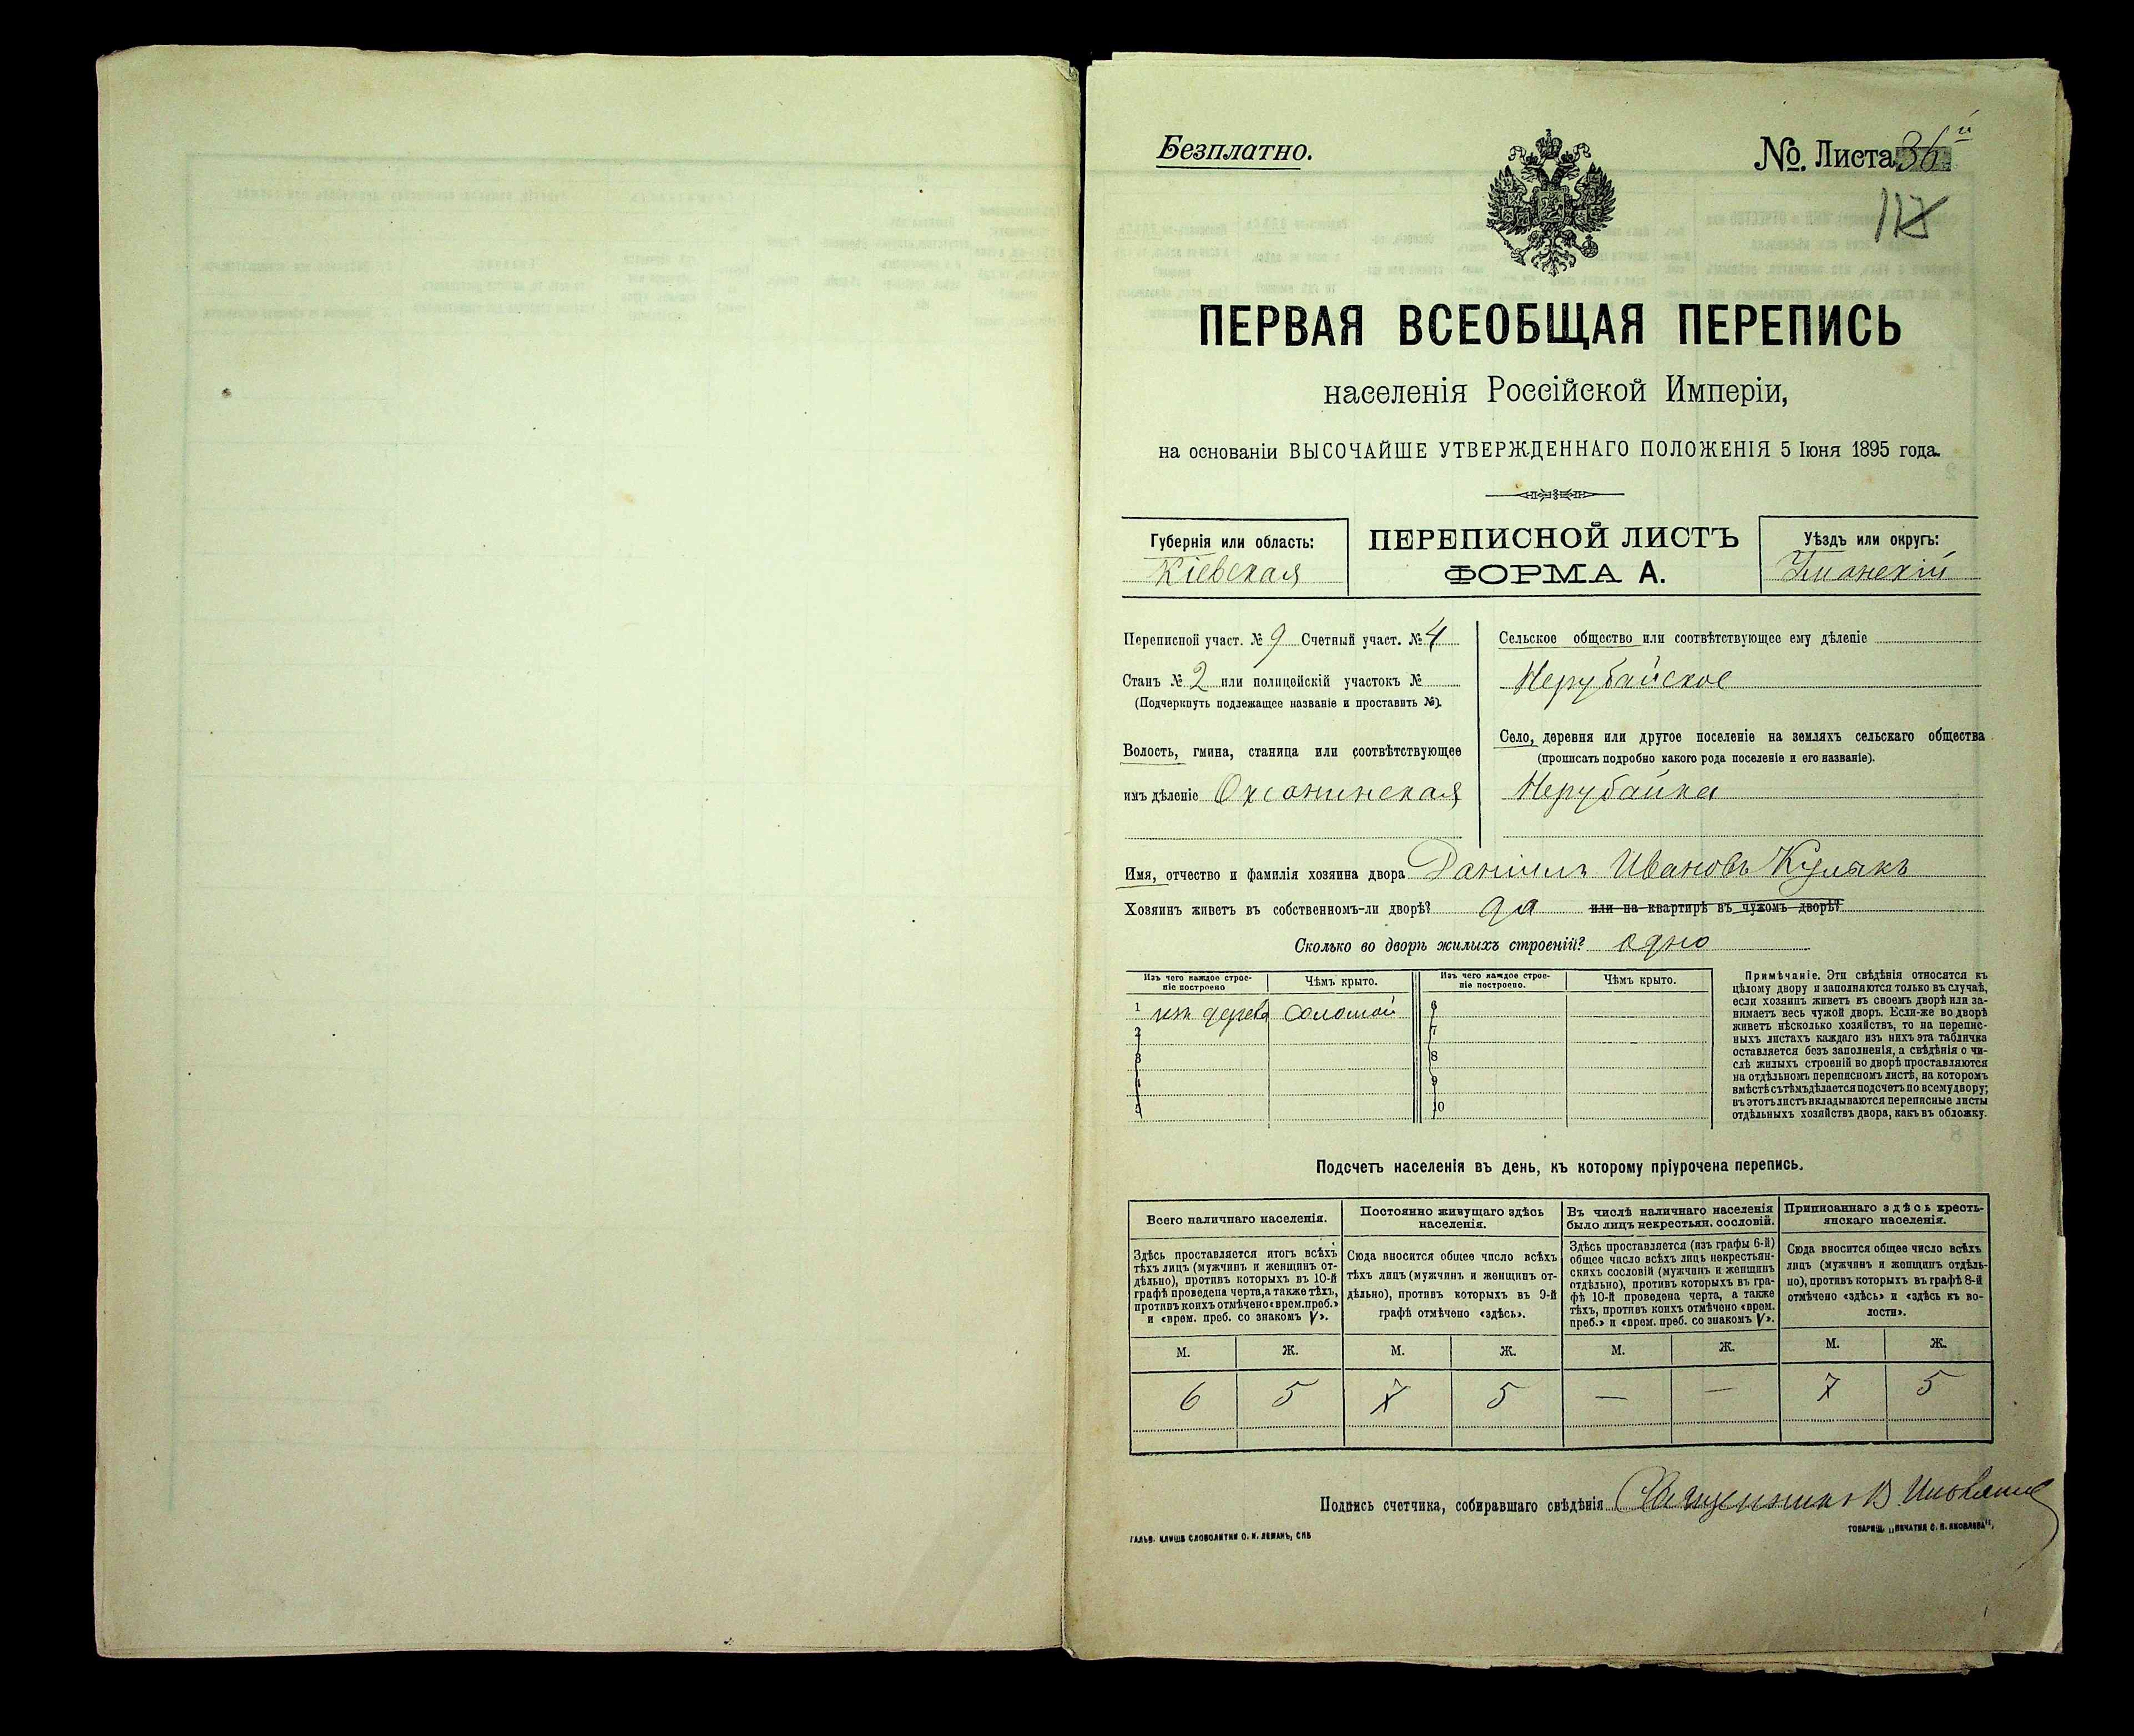 Безплатно.
№ Листа 36й
ПЕРВАЯ ВСЕОБЩАЯ ПЕРЕПИСЬ
населенія Россійской Имперіи,
на основаніи ВЫСОЧАЙШЕ УТВЕРЖДЕННАГО ПОЛОЖЕНІЯ 5 Іюня 1895 года.
Губернія или область:
Кіевская
ПЕРЕПИСНОЙ ЛИСТЪ
ФОРМА А.
Уѣздъ или округъ:
Уманскій
Переписной участ. № 9 Счетный участ. № 4
Станъ № 2 или полицейскій участокъ №
(Подчеркнуть подлежащее названіе и проставить №).
Волость, гмина, станица или соотвѣтствующее
имъ дѣленіе Оксанинская
Сельское общество или соотвѣтствующее ему дѣленіе
Нерубайское
Село, деревня или другое поселеніе на земляхъ сельскаго общества
(прописать подробно какого рода поселеніе и его названіе).
Нерубайка
Имя, отчество и фамилія хозяина двора Даніилъ Ивановъ Кулакъ
Хозяинъ живетъ въ собственномъ-ли дворѣ? да или на квартирѣ въ чужомъ дворѣ?
Сколько во дворѣ жилыхъ строеній? одно
Изъ чего каждое строе-
ніе построено
Чѣмъ крыто.
Изъ чего каждое строе-
ніе построено.
Чѣмъ крыто.
1 изъ дерева соломой
2
3
4
5
6
7
8
9
10
Примѣчаніе. Эти свѣдѣнія относятся къ
цѣлому двору и заполняются только въ случаѣ,
если хозяинъ живетъ въ своемъ дворѣ или за-
нимаетъ весь чужой дворъ. Если-же во дворѣ
живетъ нѣсколько хозяйствъ, то на перепис-
ныхъ листахъ каждаго изъ нихъ эта табличка
оставляется безъ заполненія, а свѣдѣнія о чи-
слѣ жилыхъ строеній во дворѣ проставляются
на отдѣльномъ переписномъ листѣ, на которомъ
вмѣстѣ съ тѣмъ дѣлается подсчетъ по всему двору;
въ этотъ листъ вкладываются переписные листы
отдѣльныхъ хозяйствъ двора, какъ въ обложку.
Подсчетъ населенія въ день, къ которому пріурочена перепись.
Всего наличнаго населенія.
Постоянно живущаго здѣсь
населенія.
Въ числѣ наличнаго населенія
было лицъ некрестьян. сословій.
Приписаннаго здѣсь кресть-
янскаго населенія.
Здѣсь проставляется итогъ всѣхъ
тѣхъ лицъ (мужчинъ и женщинъ от-
дѣльно), противъ которыхъ въ 10-й
графѣ проведена черта, а также тѣхъ,
противъ коихъ отмѣчено «врем. преб.»
и «врем. преб. со знакомъ V».
Сюда вносится общее число всѣхъ
тѣхъ лицъ (мужчинъ и женщинъ от-
дѣльно), противъ которыхъ въ 9-й
графѣ отмѣчено «здѣсь».
Здѣсь проставляется (изъ графы 6-й)
общее число всѣхъ лицъ некрестьян-
скихъ сословій (мужчинъ и женщинъ
отдѣльно), противъ которыхъ въ гра-
фѣ 10-й проведена черта, а также
тѣхъ, противъ коихъ отмѣчено «врем.
преб.» и «врем. преб. со знакомъ V».
Сюда вносится общее число всѣхъ
лицъ (мужчинъ и женщинъ отдѣль-
но), противъ которыхъ въ графѣ 8-й
отмѣчено «здѣсь» и «здѣсь къ во-
лости».
М. Ж. М. Ж. М. Ж. М. Ж.
6 5 7 5 — — 7 5
Подпись счетчика, собиравшаго свѣдѣнія Священникъ В.
ГАЛЬВ. КЛИШЕ СЛОВОЛИТНИ О. И. ЛЕМАНЪ, СПБ
ТОВАРИЩ. „ПЕЧАТНЯ С. П. ЯКОВЛЕВА“,